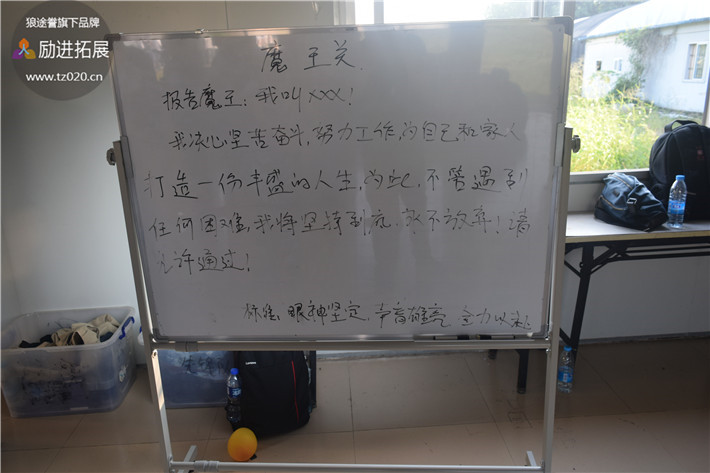 狼途誉旗下品牌
励进拓展
www.tz020.cn
魔王关
报告魔王：我叫xxx！
我决心坚苦奋斗，努力工作，为自己和家人
打造一份丰盛的人生，为此，不管遇到
任何困难，我将坚持到底，永不放弃！请
允许通过！
标准：眼神坚定，声音雄亮，全力以赴